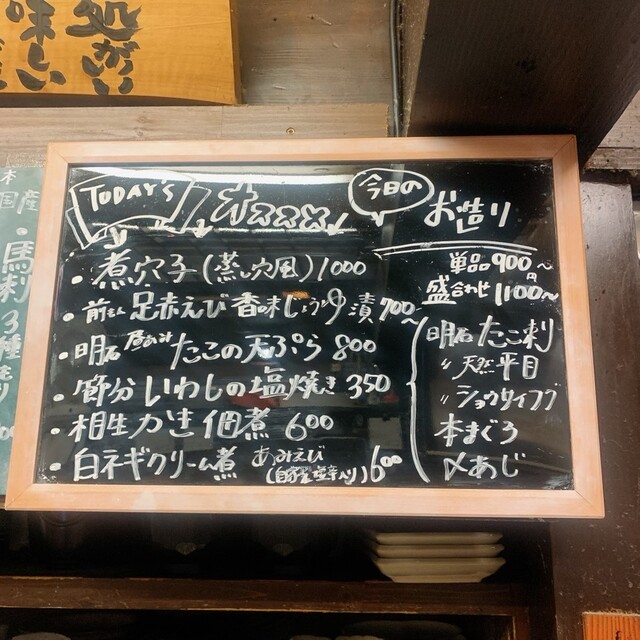 処がいい
味しい
TODAY'S オススメ!
・煮穴子(蒸し穴風) 1000
・前もん 足赤えび 香味じょうゆ漬 700〜
・明石 たこの天ぷら 800
・節分いわしの塩焼き 350
・相生カキ佃煮 600
・白ネギクリーム煮 あみえび 600
今日の お造り
単品 900円〜
盛合わせ 1100〜
明石 たこ刺
〃 天然平目
本まぐろ
〆あじ
国産
・馬刺 3種